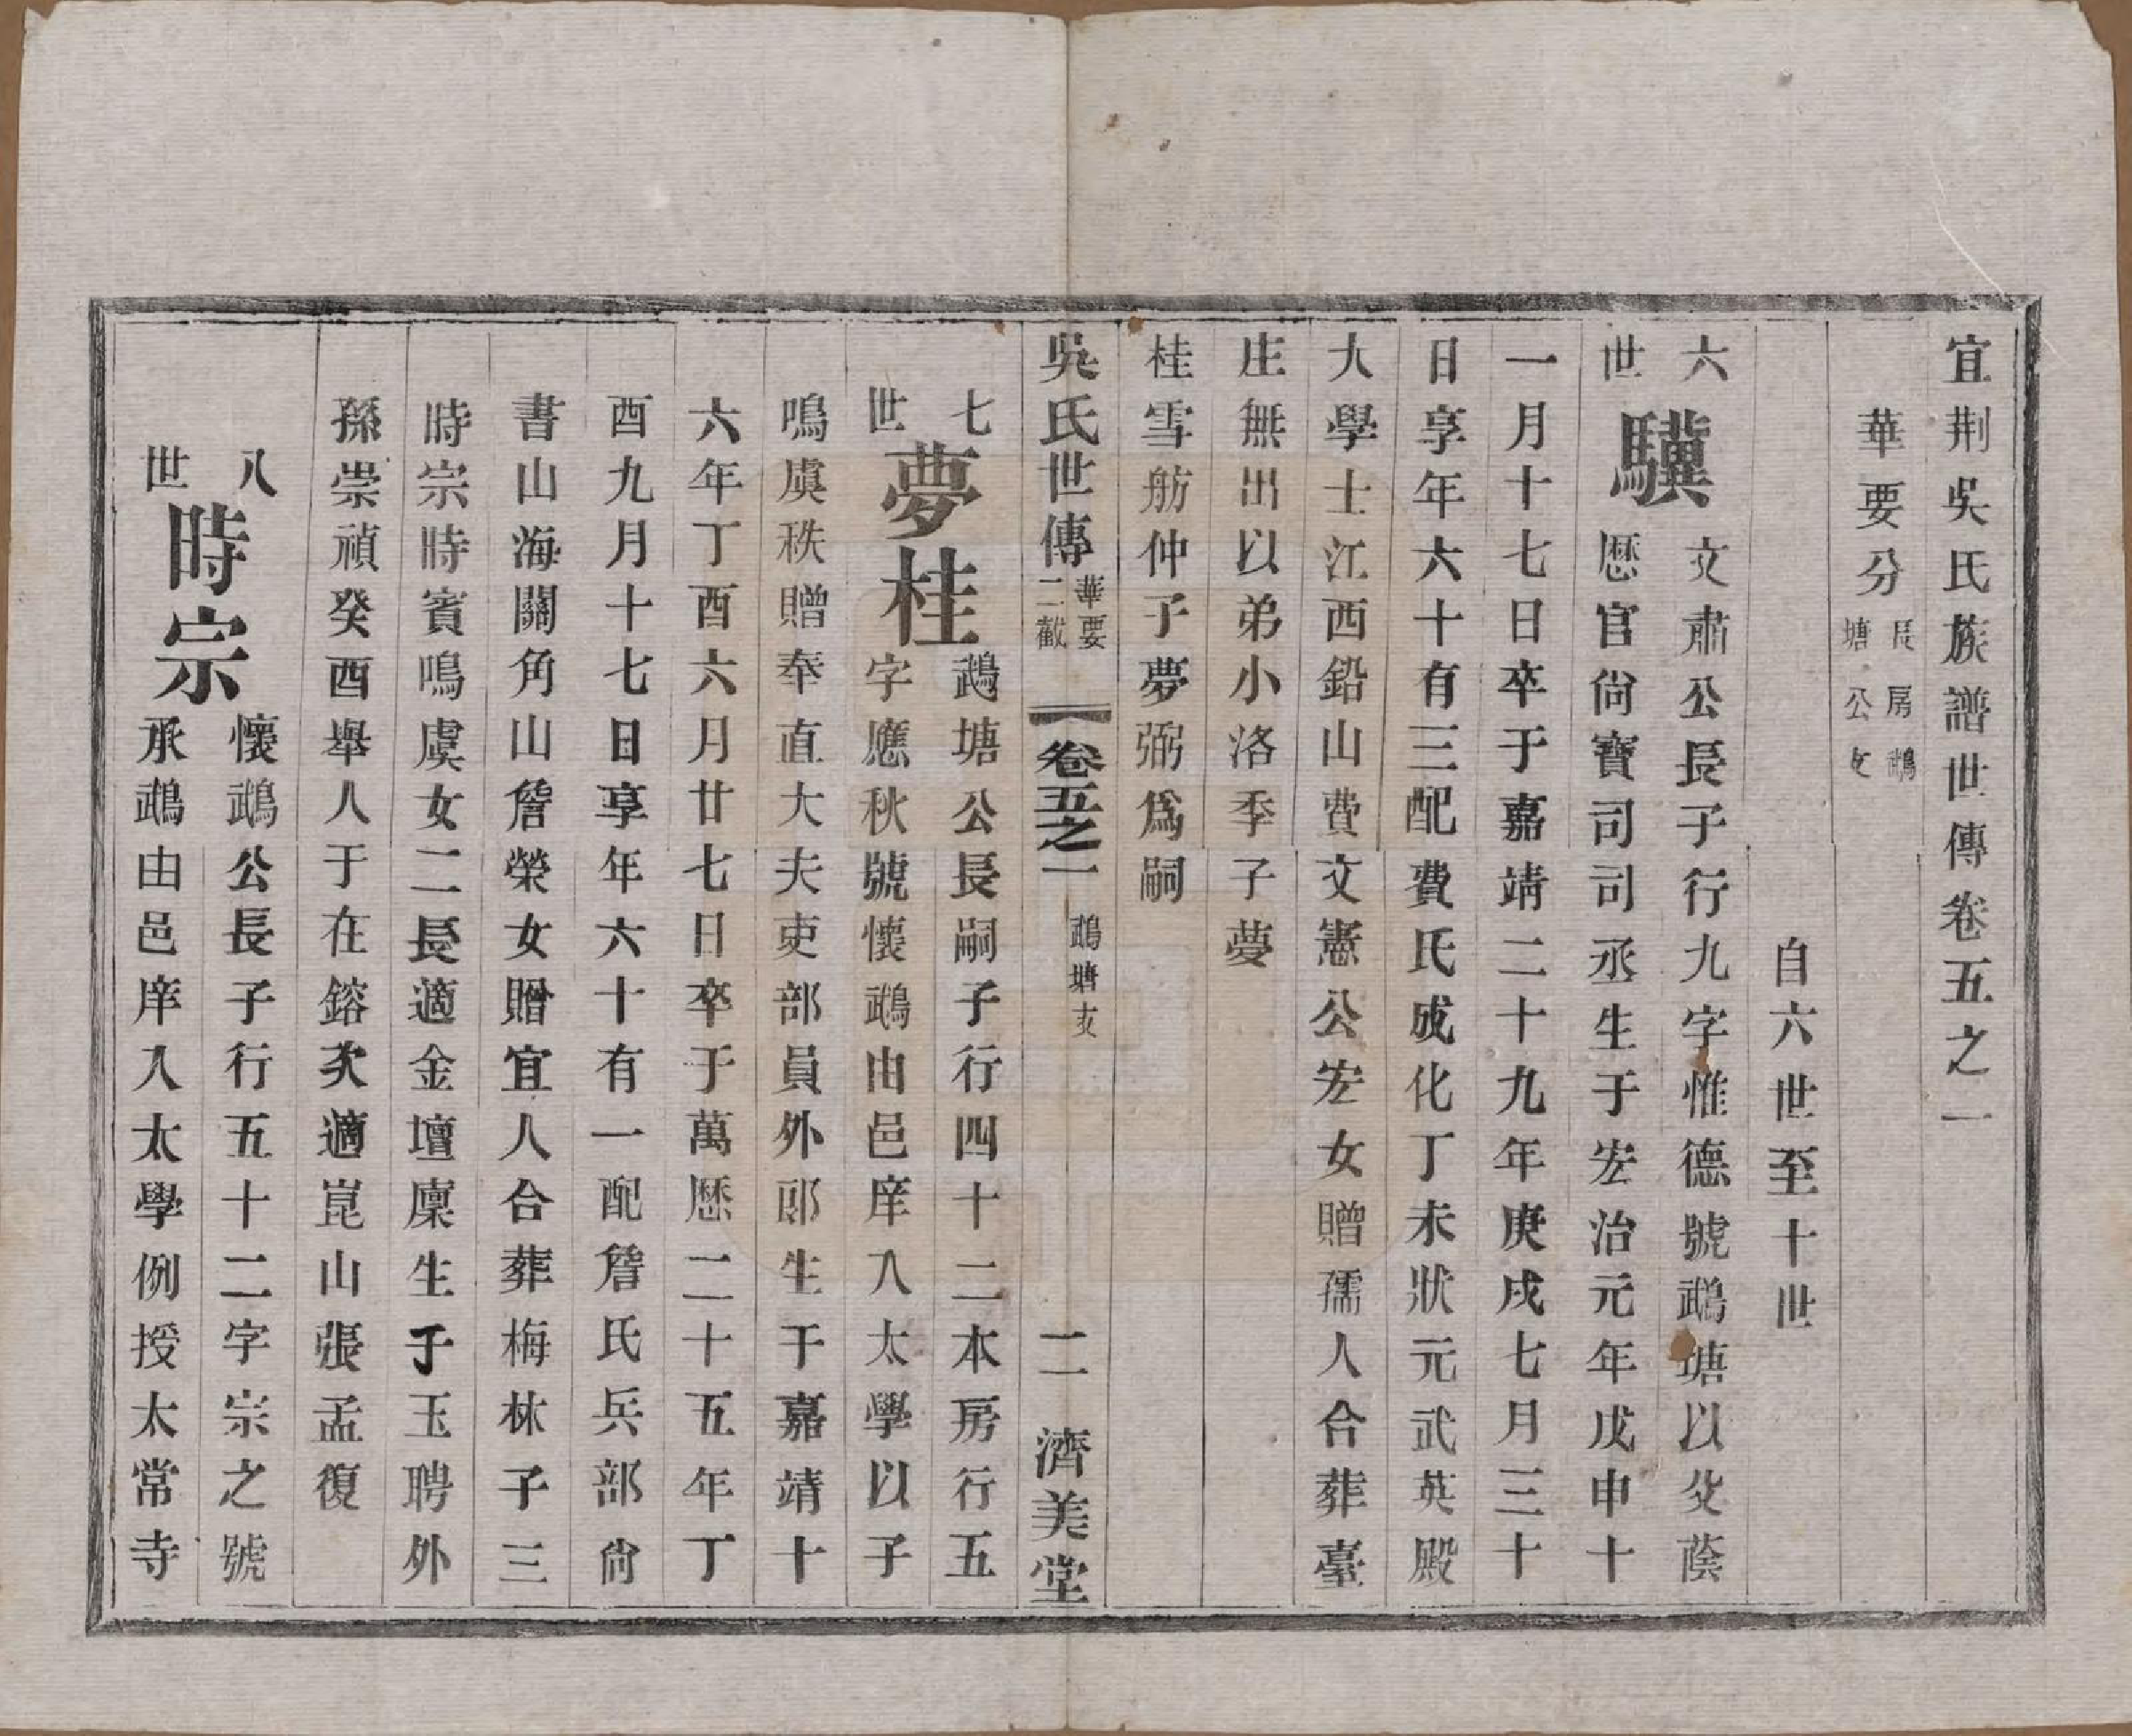 宜荆吳氏族譜世傳卷五之一
華要分長房鵡塘公支
自六世至十世
六世 驥 文肅公長子行九字惟德號鵡塘以父蔭
歷官尚寶司司丞生于宏治元年戊申十
一月十七日卒于嘉靖二十九年庚戌七月三十
日享年六十有三配費氏成化丁未狀元武英殿
大學士江西鉛山費文憲公宏女贈孺人合葬臺
庄無出以弟小洛季子夢
桂雪舫仲子夢弼爲嗣
吳氏世傳 華要二截 卷五之一 鵡塘支 二 濟美堂
七世 夢桂 鵡塘公長嗣子行四十二本房行五
字應秋號懷鵡由邑庠入太學以子
鳴虞秩贈奉直大夫吏部員外郎生于嘉靖十
六年丁酉六月廿七日卒于萬歷二十五年丁
酉九月十七日享年六十有一配詹氏兵部尚
書山海關角山詹榮女贈宜人合葬梅林子三
時宗時賓鳴虞女二長適金壇廩生于玉聘外
孫崇禎癸酉舉人于在鎔次適崑山張孟復
八世 時宗 懷鵡公長子行五十二字宗之號
承鵡由邑庠入太學例授太常寺